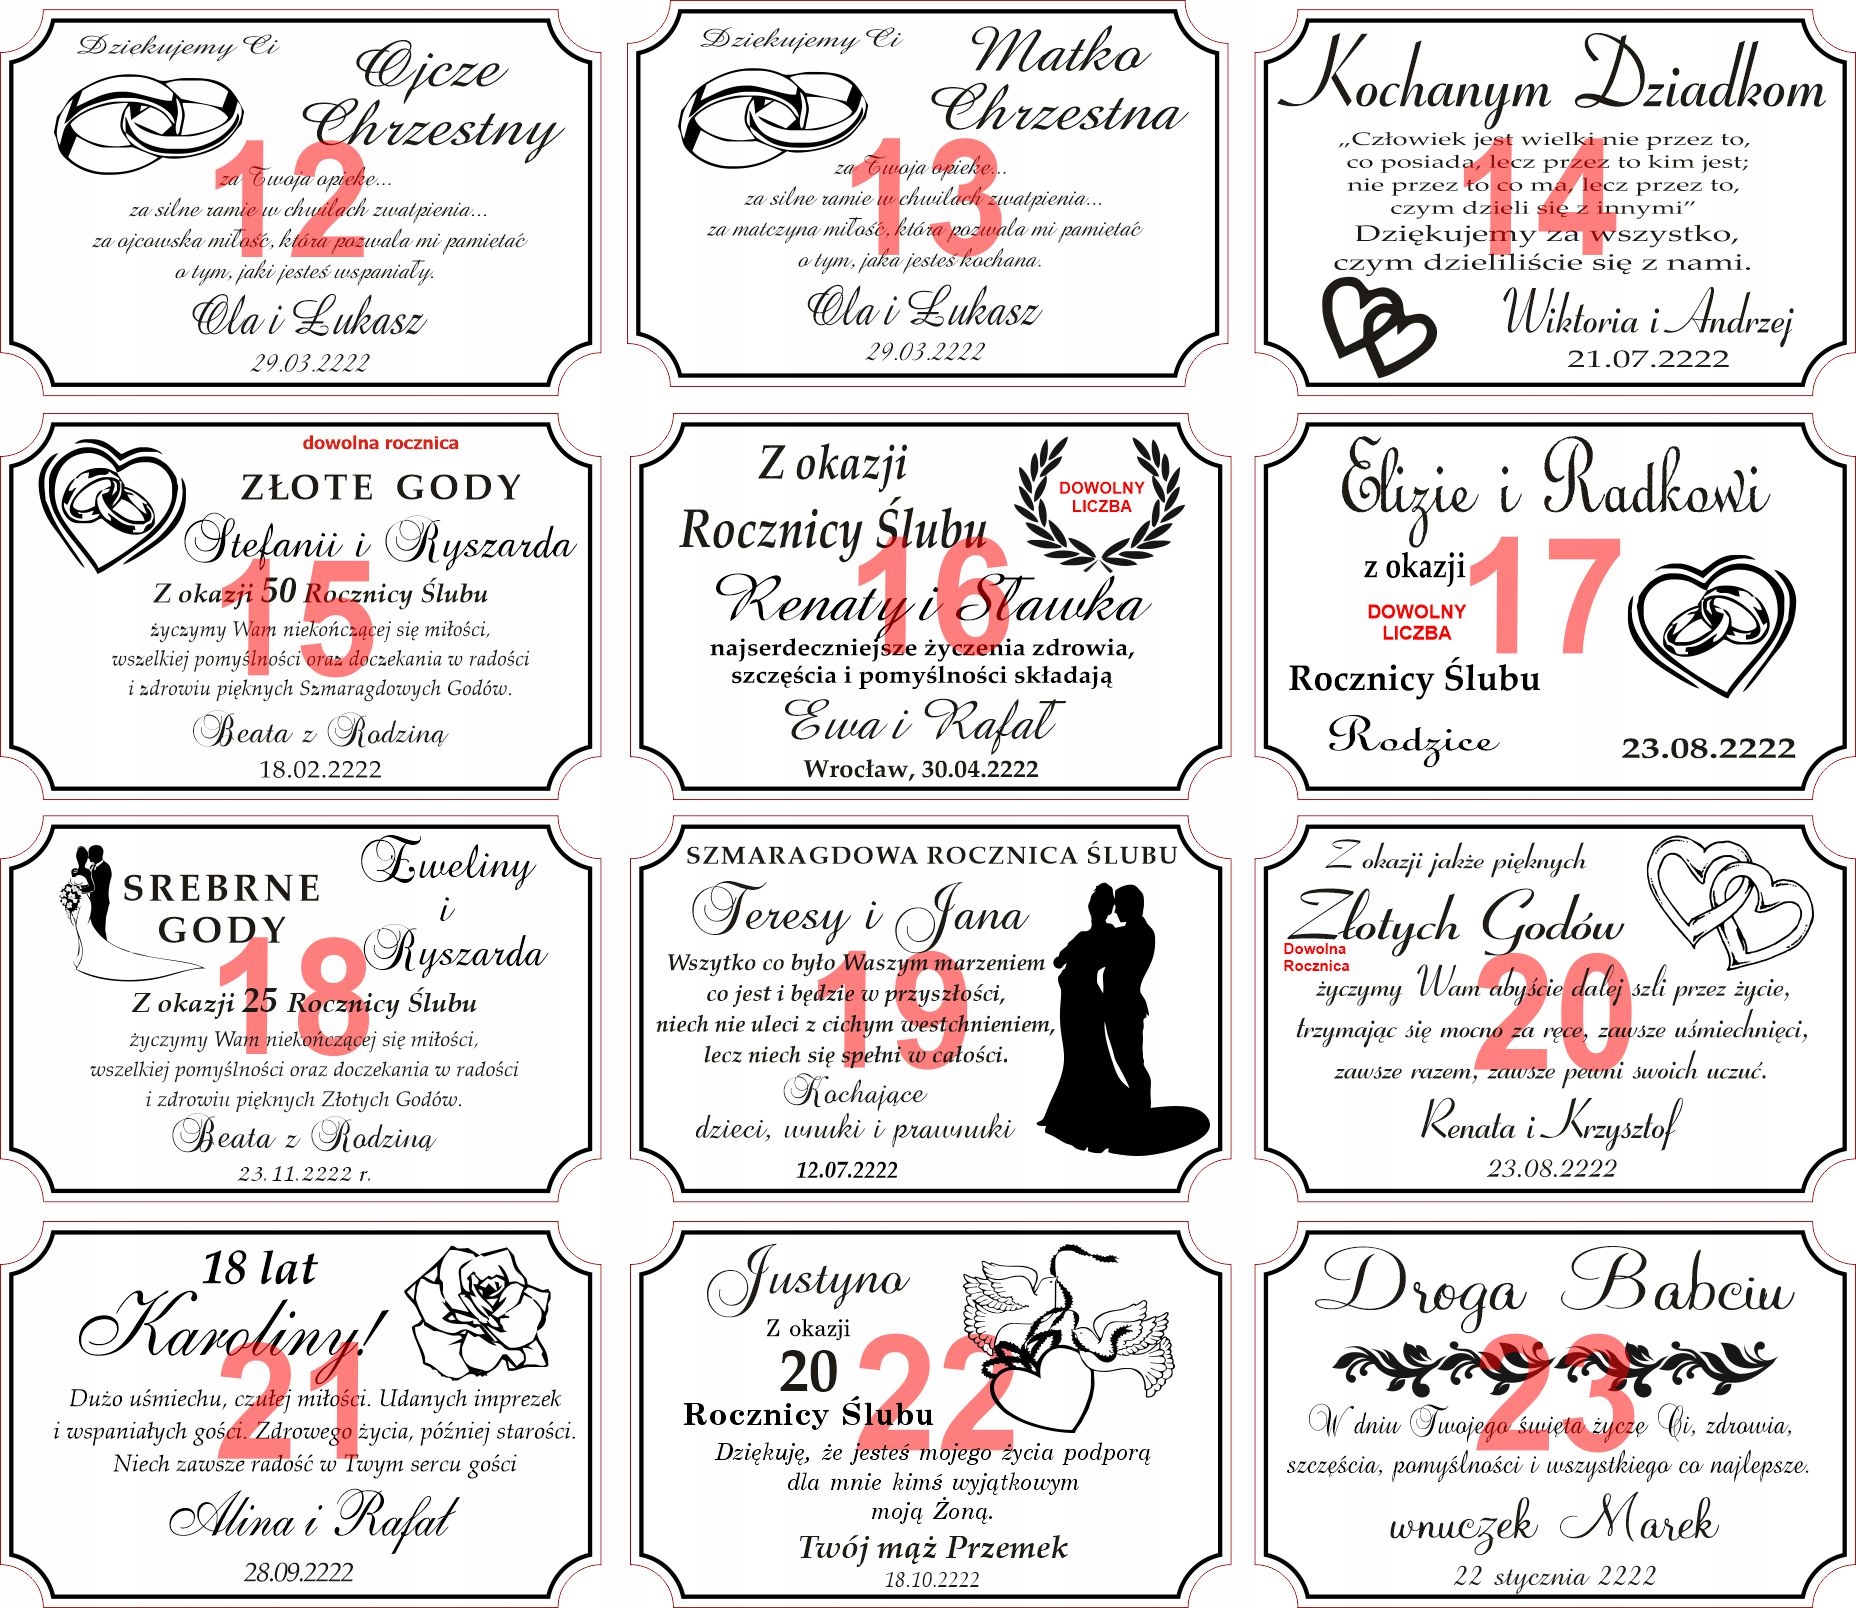 Dziękujemy Ci
Ojcze
Chrzestny
12
za Twoja opieke...
za silne ramie w chwilach zwatpienia...
za ojcowska miłość, która pozwala mi pamietać
o tym, jaki jesteś wspaniały.
Ola i Łukasz
29.03.2222
Dziękujemy Ci
Matko
Chrzestna
13
za Twoja opieke...
za silne ramie w chwilach zwatpienia...
za matczyna miłość, która pozwala mi pamietać
o tym, jaka jesteś kochana.
Ola i Łukasz
29.03.2222
Kochanym Dziadkom
14
„Człowiek jest wielki nie przez to,
co posiada, lecz przez to kim jest;
nie przez to co ma, lecz przez to,
czym dzieli się z innymi”
Dziękujemy za wszystko,
czym dzieliliście się z nami.
Wiktoria i Andrzej
21.07.2222
dowolna rocznica
ZŁOTE GODY
Stefanii i Ryszarda
15
Z okazji 50 Rocznicy Ślubu
życzymy Wam niekończącej się miłości,
wszelkiej pomyślności oraz doczekania w radości
i zdrowiu pięknych Szmaragdowych Godów.
Beata z Rodziną
18.02.2222
Z okazji
Rocznicy Ślubu
DOWOLNY
LICZBA
16
Renaty i Sławka
najserdeczniejsze życzenia zdrowia,
szczęścia i pomyślności składają
Ewa i Rafał
Wrocław, 30.04.2222
Elizie i Radkowi
z okazji
17
DOWOLNY
LICZBA
Rocznicy Ślubu
Rodzice
23.08.2222
SREBRNE
GODY
Eweliny
i
Ryszarda
18
Z okazji 25 Rocznicy Ślubu
życzymy Wam niekończącej się miłości,
wszelkiej pomyślności oraz doczekania w radości
i zdrowiu pięknych Złotych Godów.
Beata z Rodziną
23.11.2222 r.
SZMARAGDOWA ROCZNICA ŚLUBU
Teresy i Jana
19
Wszytko co było Waszym marzeniem
co jest i będzie w przyszłości,
niech nie uleci z cichym westchnieniem,
lecz niech się spełni w całości.
Kochające
dzieci, wnuki i prawnuki
12.07.2222
Z okazji jakże pięknych
Złotych Godów
Dowolna
Rocznica
20
życzymy Wam abyście dalej szli przez życie,
trzymając się mocno za ręce, zawsze uśmiechnięci,
zawsze razem, zawsze pewni swoich uczuć.
Renata i Krzysztof
23.08.2222
18 lat
Karoliny!
21
Dużo uśmiechu, czułej miłości. Udanych imprezek
i wspaniałych gości. Zdrowego życia, później starości.
Niech zawsze radość w Twym sercu gości
Alina i Rafał
28.09.2222
Justyno
Z okazji
20
Rocznicy Ślubu
22
Dziękuję, że jesteś mojego życia podporą
dla mnie kimś wyjątkowym
moją Żoną.
Twój mąż Przemek
18.10.2222
Droga Babciu
23
W dniu Twojego święta życzę Ci, zdrowia,
szczęścia, pomyślności i wszystkiego co najlepsze.
wnuczek Marek
22 stycznia 2222